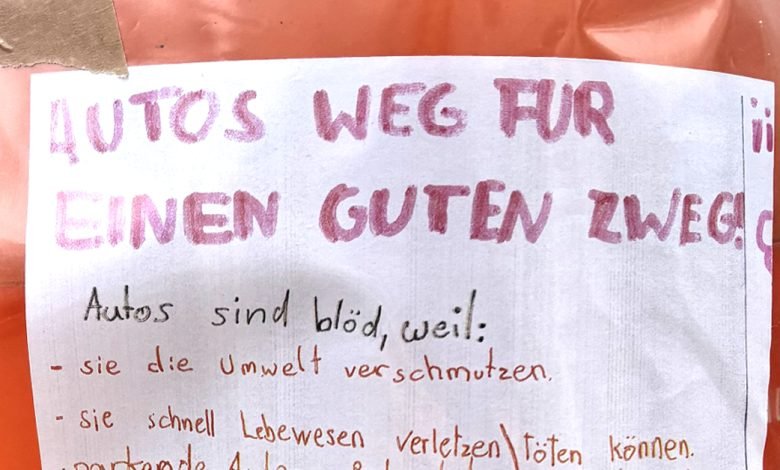 AUTOS WEG FUR
EINEN GUTEN ZWEG!
Autos sind blöd, weil:
- sie die Umwelt verschmutzen.
- sie schnell Lebewesen verletzen\töten können.
parkende